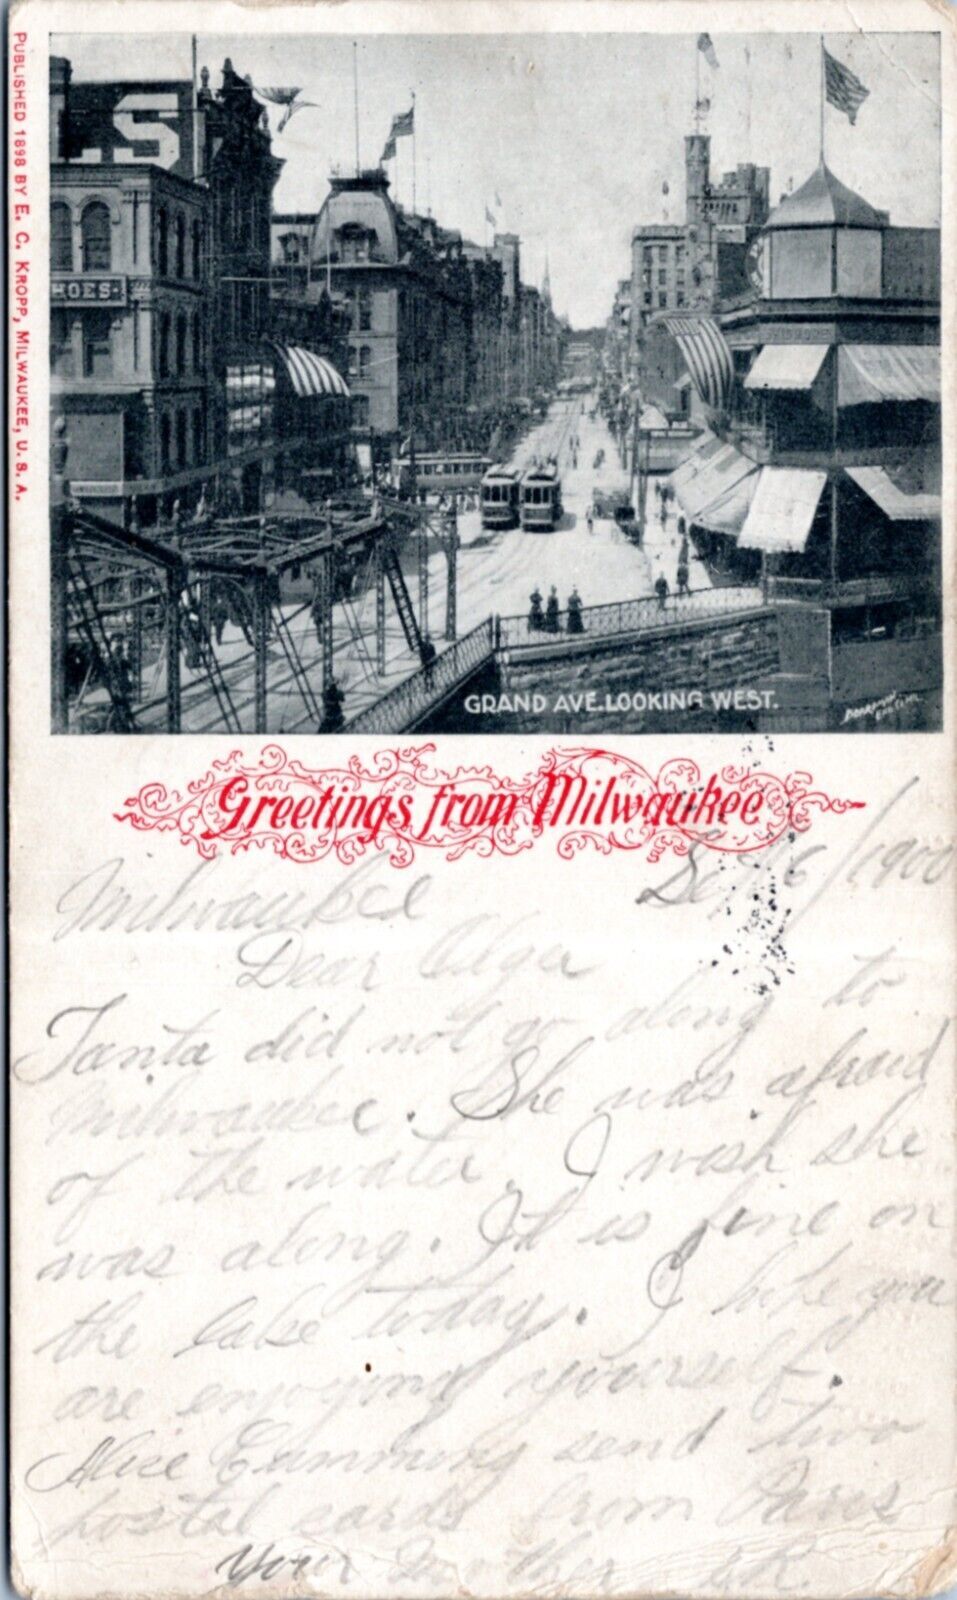 PUBLISHED 1898 BY E. C. KROPP, MILWAUKEE, U. S. A.
LS
HOES.
GRAND AVE. LOOKING WEST.
Greetings from Milwaukee
Milwaukee Sept 6/1900
Dear Olga
Tanta did not go along to
Milwaukee. She was afraid
of the water. I wish she
was along. It is fine on
the lake today. I hope you
are enjoying yourself.
Alice Cummings send two
postal cards from Paris
Your Mother